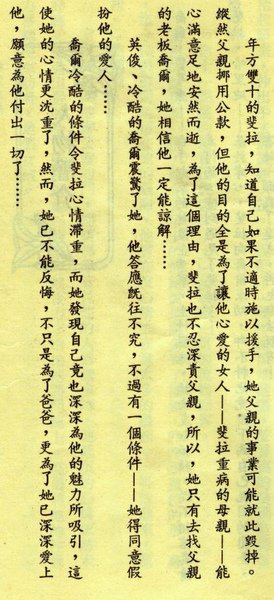 年方雙十的斐拉，知道自己如果不適時施以援手，她父親的事業可能就此毀掉。
縱然父親挪用公款，但他的目的全是為了讓他心愛的女人——斐拉重病的母親——能
心滿意足地安然而逝，為了這個理由，斐拉也不忍深責父親，所以，她只有去找父親
的老板喬爾，她相信他一定能諒解……
英俊、冷酷的喬爾震驚了她，他答應既往不究，不過有一個條件——她得同意假
扮他的愛人……
喬爾冷酷的條件令斐拉心情滯重，而她發現自己竟也深深為他的魅力所吸引，這
使她的心情更沈重了，然而，她已不能反悔，不只是為了爸爸，更為了她已深深愛上
他，願意為他付出一切了……